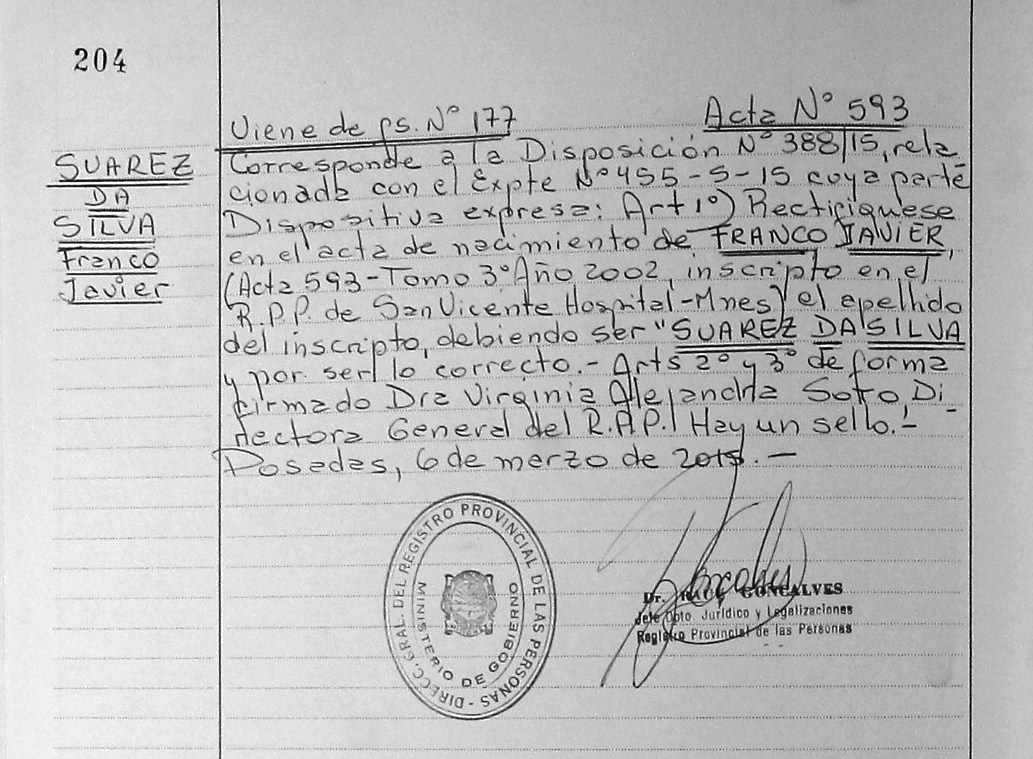 204
Viene de fs. Nº 177
Acta Nº 593
SUAREZ
DA
SILVA
Franco
Javier
Corresponde a la Disposición Nº 388/15, rela_
cionada con el Expte Nº 455-S-15 cuya parte
Dispositiva expresa: Art 1º) Rectifiquese
en el acta de nacimiento de FRANCO JAVIER,
(Acta 593-Tomo 3º Año 2002, inscripto en el
R.P.P. de San Vicente Hospital-Mnes) el apellido
del inscripto, debiendo ser "SUAREZ DA SILVA
y por ser lo correcto.- Arts 2º y 3º de forma
firmado Dra Virginia Alejandra Soto, Di_
rectora General del R.P.P. Hay un sello.-
Posadas, 6 de marzo de 2015.-
DIRECC. GRAL. DEL REGISTRO PROVINCIAL DE LAS PERSONAS -
MINISTERIO DE GOBIERNO
Dr. RAUL GONCALVES
Jefe Dpto Jurídico y Legalizaciones
Registro Provincial de las Personas